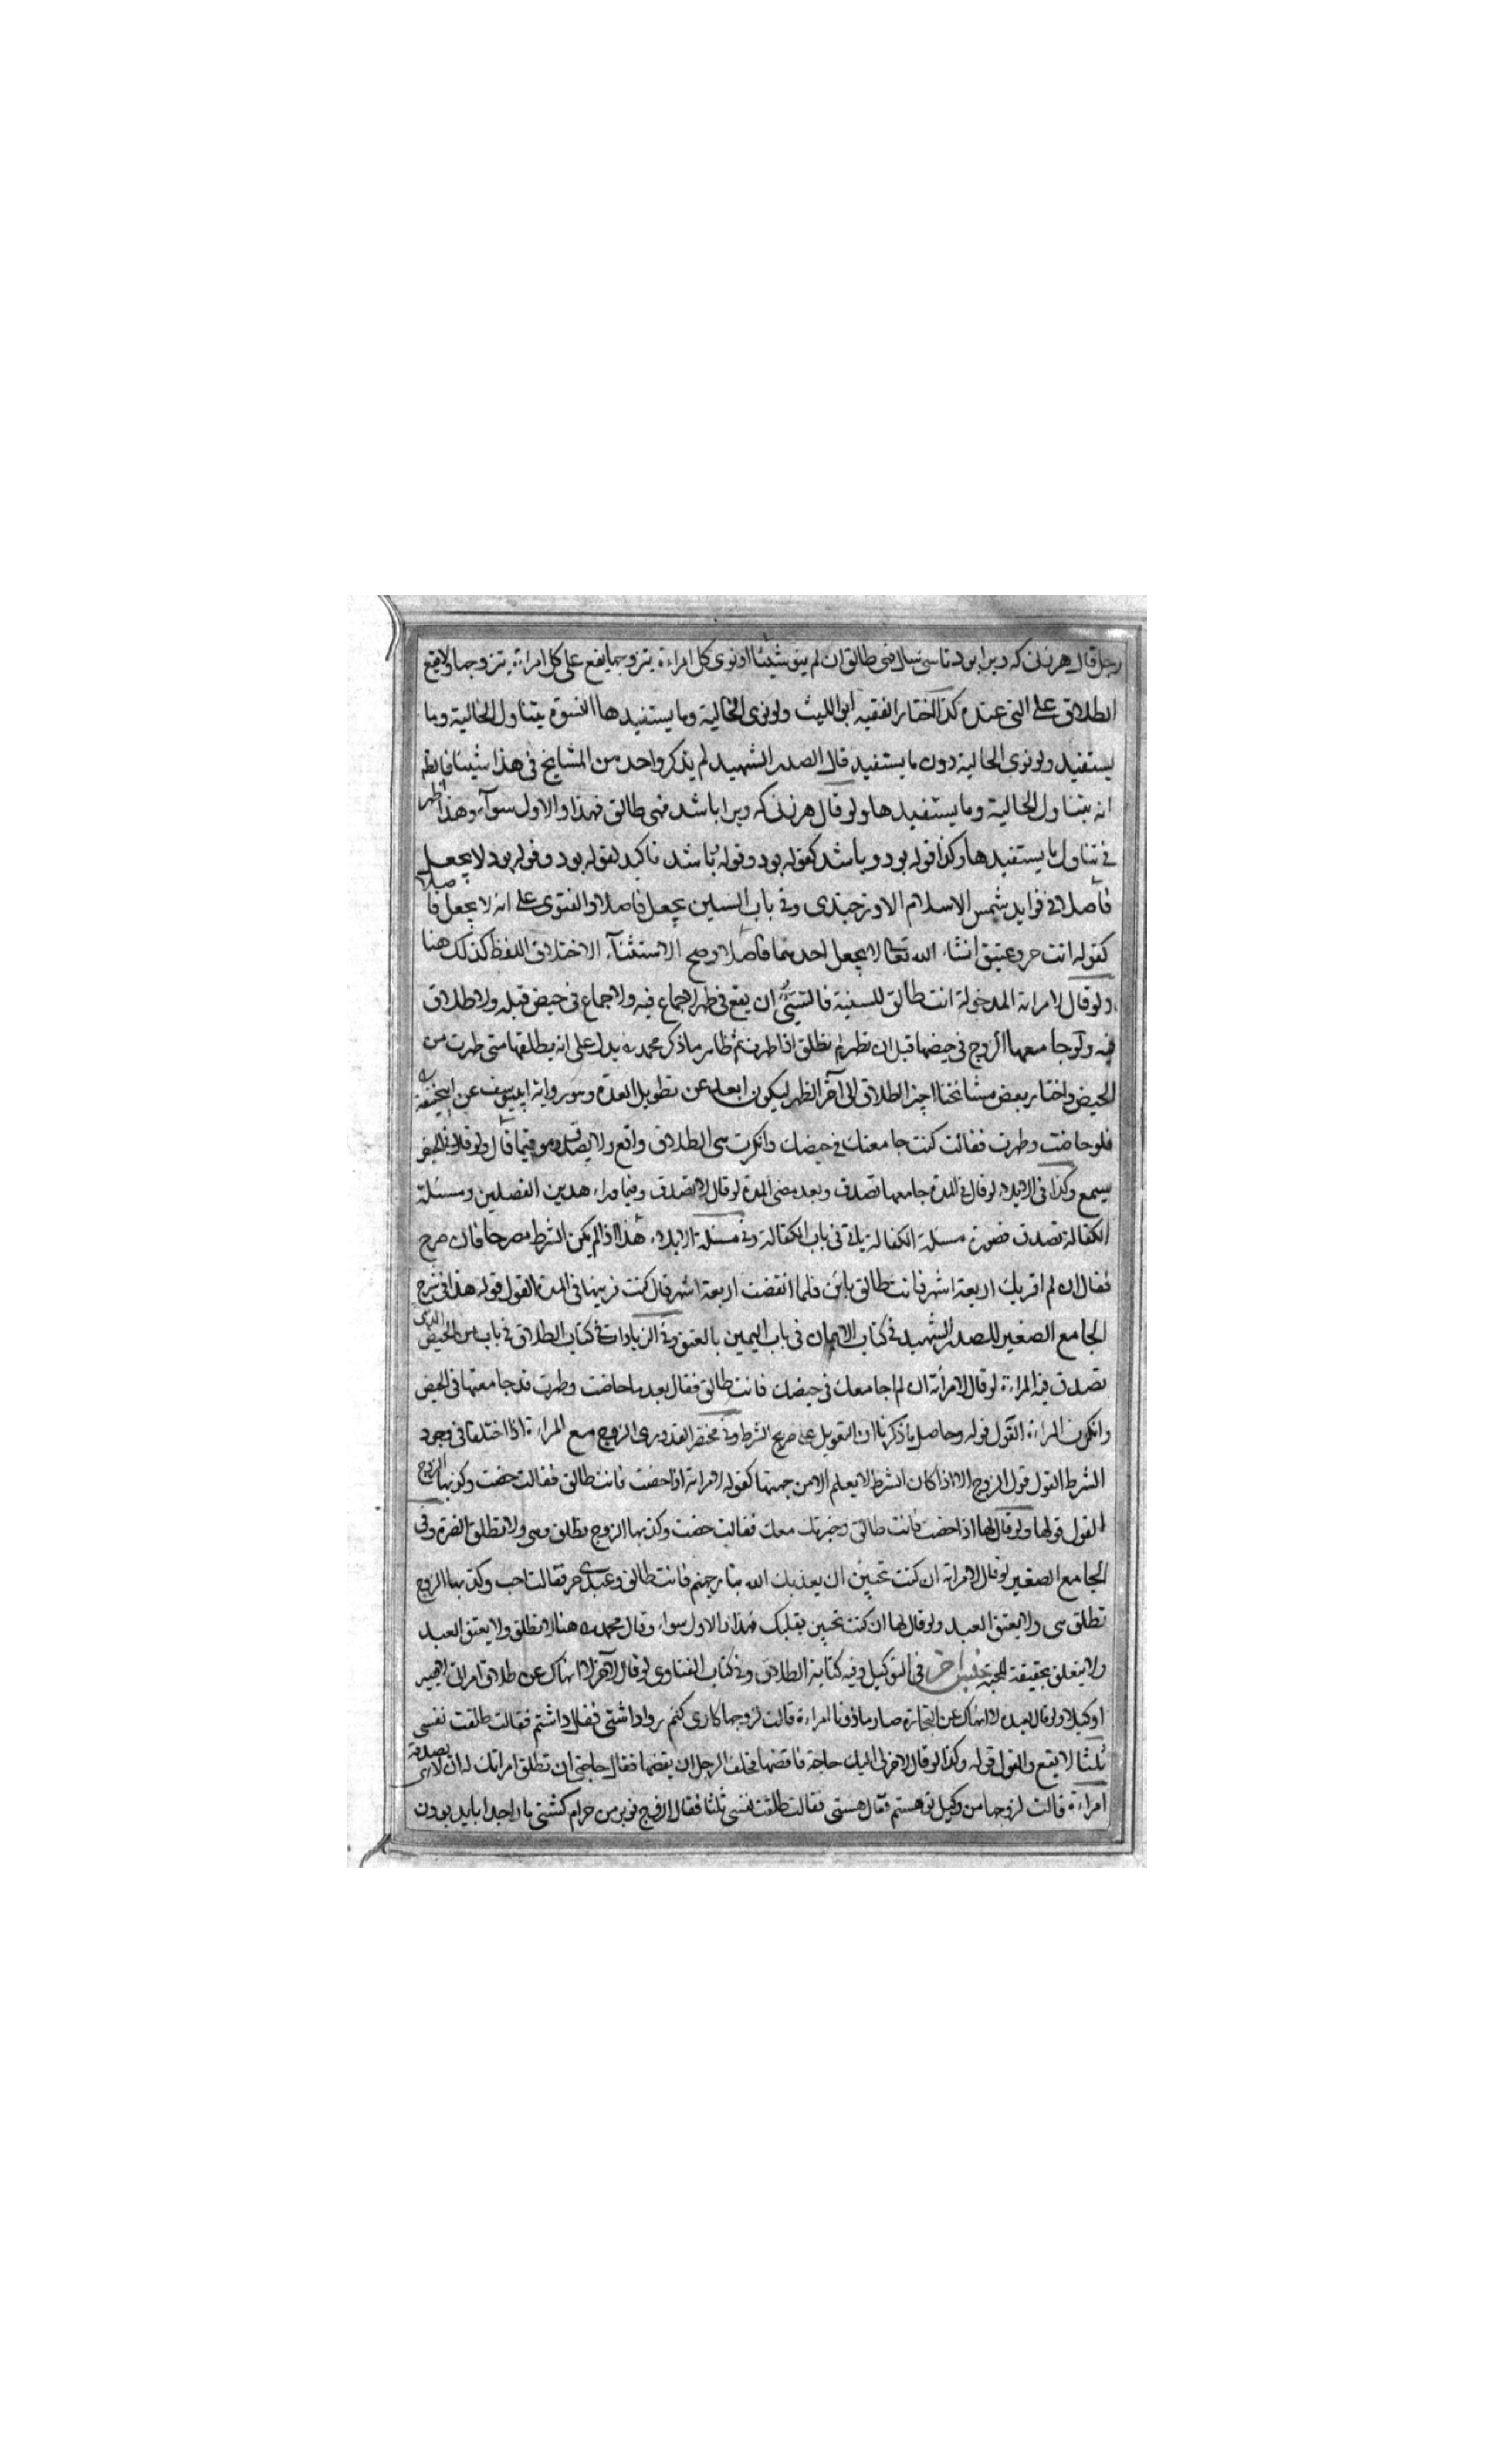 رجل قال هر زنی که ویرا بود تا سی سال فهی طالق ان لم ینو شیئا او نوی کل امراءة یتزوجها یقع علی کل امراءة یتزوجها ولا یقع
الطلاق علی التی عنده کذا اختار الفقیه ابو اللیث ولو نوی الحالیة وما یستفیدها النسوة یتناول الحالیة وما
یستفید ولو نوی الحالیة دون ما یستفید قال الصدر الشهید لم یذکر واحد من المشایخ فی هذا شیئا فاظهر
انه یتناول الحالیة وما یستفیدها ولو قال هر زنی که ویرا باشد فهی طالق فهذا والاول سوآء وهذا اظهر
فی تناول ما یستفیدها وکذا قوله بود و باشد کقوله بود وقوله باشد تاکید لقوله بود وقوله بود لا یجعل
فاصلا فی فواید شمس الاسلام الاوزجندی وفی باب السین یجعل فاصلا والفتوی علی انه لا یجعل فاصلا
کقوله انت حر وعتیق انشاء الله تعالی لا یجعل احدهما فاصلا وصح الاستثنآء الاختلاف اللفظ کذلک هنا
ولو قال لامراته المدخولة انت طالق للسنیة فالسنی ان یقع فی طهر لا جماع فیه ولا جماع فی حیض قبله ولا طلاق
فیه ولو جامعها الزوج فی حیضها قبل ان تطهر لم تطلق اذا طهرت ثم ظاهر ما ذکر محمد یدل علی انه یطلقها متی طهرت من
الحیض واختار بعض مشائخنا اخر الطلاق الی آخر الطهر لیکون ابعد عن تطویل العدة وهو روایة ابی یوسف عن ابی حنیفة
فلو حاضت وطهرت فقالت کنت جامعتک فی حیضک وانکرت هی الطلاق واقع ولا یصدق هو فیما قال ولو قال فی الحیض
یسمع وکذا فی الایلاء لو قال فی المدة جامعها تصدق وبعد مضی المدة لو قال لا تصدق وفیما وراء هذین الفصلین ومسئلة
الکفالة تصدق فصورة مسئلة الکفالة یاتی فی باب الکفالة وفی مسئلة الایلاء هذا اذا لم یکن الشرط مصرحا فان صرح
فقال ان لم اقربک اربعة اشهر فانت طالق باین فلما انقضت اربعة اشهر قال کنت قربتها فی المدة القول قوله هذا فی شرح
الجامع الصغیر للصدر الشهید فی کتاب الایمان فی باب الیمین بالعتق وفی الزیادات فی کتاب الطلاق فی باب من الحیض الذی
تصدق فیه المراءة لو قال لامراته ان لم اجامعک فی حیضک فانت طالق فقال بعد ما حاضت وطهرت قد جامعتها فی الحیض
وانکرت المراءة القول قوله وحاصل ما ذکرنا ان التعویل علی صریح الشرط وفی مختصر القدوری الزوج مع المراءة اذا اختلفا فی وجود
الشرط القول قول الزوج الا اذا کان الشرط لا یعلم الا من جهتها کقوله لامراته اذا حضت فانت طالق فقالت حضت وکذبها الزوج
القول قولها ولو قال لها اذا حضت فانت طالق وضرتک معک فقالت حضت وکذبها الزوج تطلق هی ولا تطلق الضرة وفی
الجامع الصغیر لو قال لامراته ان کنت تحبین ان یعذبک الله بنار جهنم فانت طالق وعبدی حر فقالت احب وکذبها الزوج
تطلق هی ولا یعتق العبد ولو قال لها ان کنت تحبین بقلبک فهذا والاول سواء وقال محمد هنا لا تطلق ولا یعتق العبد
ولا یتعلق بحقیقة المحبة جنس اخر فی التوکیل وفیه کنایة الطلاق وفی کتاب الفتاوی لو قال لآخر لا انهاک عن طلاق امراتی لا یصیر
وکیلا ولو قال لعبده لا انهاک عن التجارة صار ماذونا امراءة قالت لزوجها کاری کنم روا داشتی فقال داشتم فقالت طلقت نفسی
ثلثا لا یقع والقول قوله وکذا لو قال لاخر لی الیک حاجة فاقضها فحلف الرجل ان یقضها فقال حاجتی ان تطلق امراتک له ان لا یصدقه
امراءة قالت لزوجها من وکیل تو هستم فقال هستی فقالت طلقت نفسی ثلثا فقال الزوج تو بر من حرام کشتی مارا جدا باید بودن